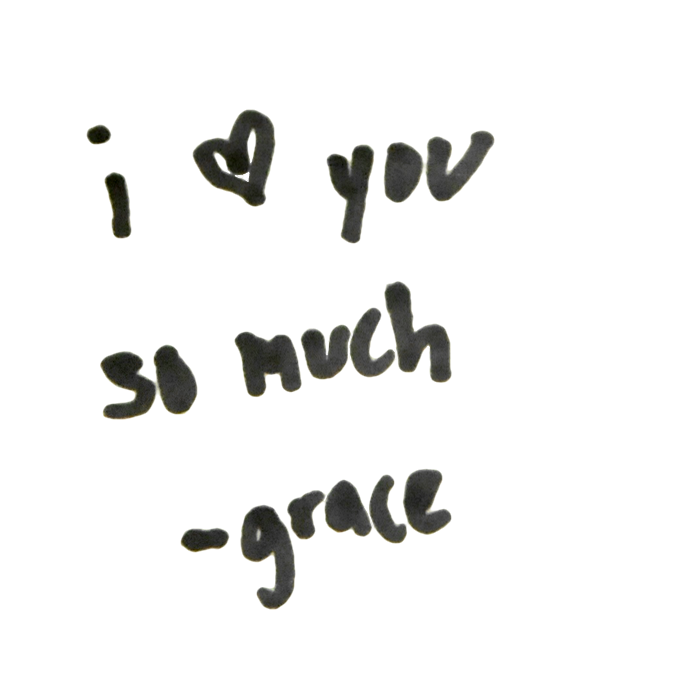 i ♡ you
so much
-grace